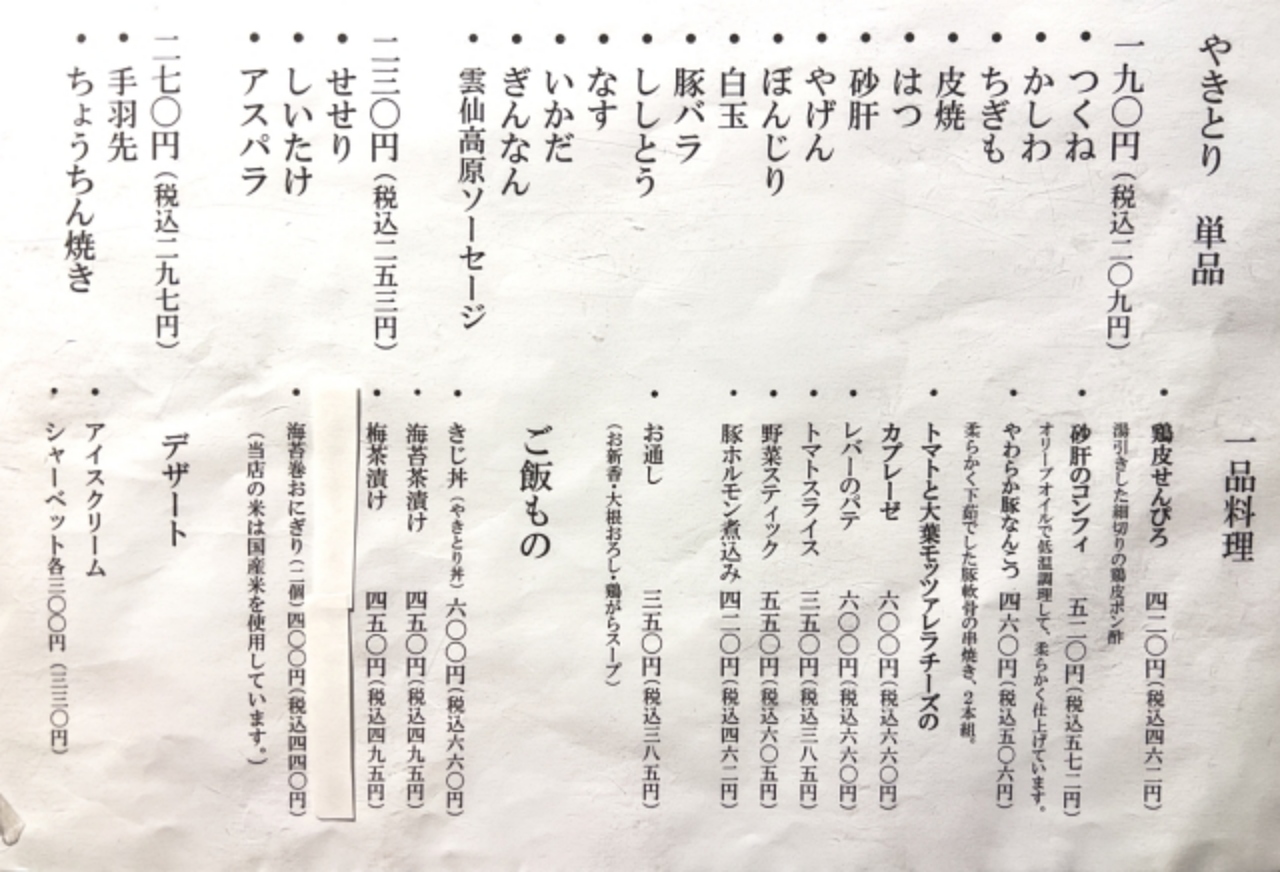 やきとり 単品
一九〇円（税込二〇九円）
・つくね
・かしわ
・ちぎも
・皮焼
・はつ
・砂肝
・やげん
・ぼんじり
・白玉
・豚バラ
・ししとう
・なす
・いかだ
・ぎんなん
・雲仙高原ソーセージ
二三〇円（税込二五三円）
・せせり
・しいたけ
・アスパラ
二七〇円（税込二九七円）
・手羽先
・ちょうちん焼き
一品料理
・鶏皮せんぴろ 四二〇円（税込四六二円）
湯引きした細切りの鶏皮ポン酢
・砂肝のコンフィ 五二〇円（税込五七二円）
オリーブオイルで低温調理して、柔らかく仕上げています。
・やわらか豚なんこつ 四六〇円（税込五〇六円）
柔らかく下茹でした豚軟骨の串焼き、2本組。
・トマトと大葉モッツァレラチーズの
カプレーゼ 六〇〇円（税込六六〇円）
・レバーのパテ 六〇〇円（税込六六〇円）
・トマトスライス 三五〇円（税込三八五円）
・野菜スティック 五五〇円（税込六〇五円）
・豚ホルモン煮込み 四二〇円（税込四六二円）
・お通し 三五〇円（税込三八五円）
（お新香・大根おろし・鶏がらスープ）
ご飯もの
・きじ丼（やきとり丼）六〇〇円（税込六六〇円）
・海苔茶漬け 四五〇円（税込四九五円）
・梅茶漬け 四五〇円（税込四九五円）
・海苔巻おにぎり（二個）四〇〇円（税込四四〇円）
（当店の米は国産米を使用しています。）
デザート
・アイスクリーム
・シャーベット各三〇〇円（三三〇円）